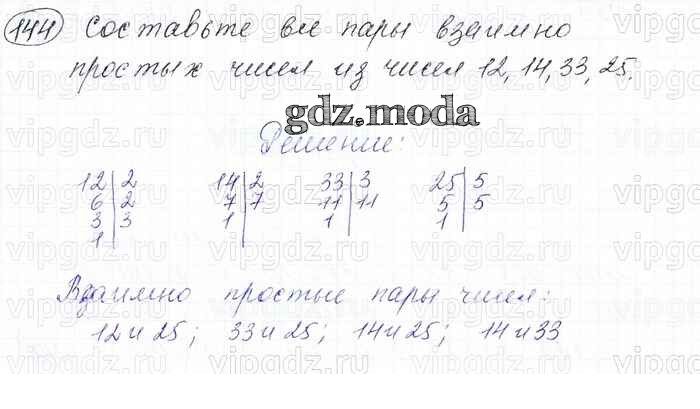 144 Составьте все пары взаимно
простых чисел из чисел 12, 14, 33, 25.
gdz.moda
Решение:
12 | 2 14 | 2 33 | 3 25 | 5
6 | 2 7 | 7 11 | 11 5 | 5
3 | 3 1 | 1 | 1 |
1 |
Взаимно простые пары чисел:
12 и 25; 33 и 25; 14 и 25; 14 и 33